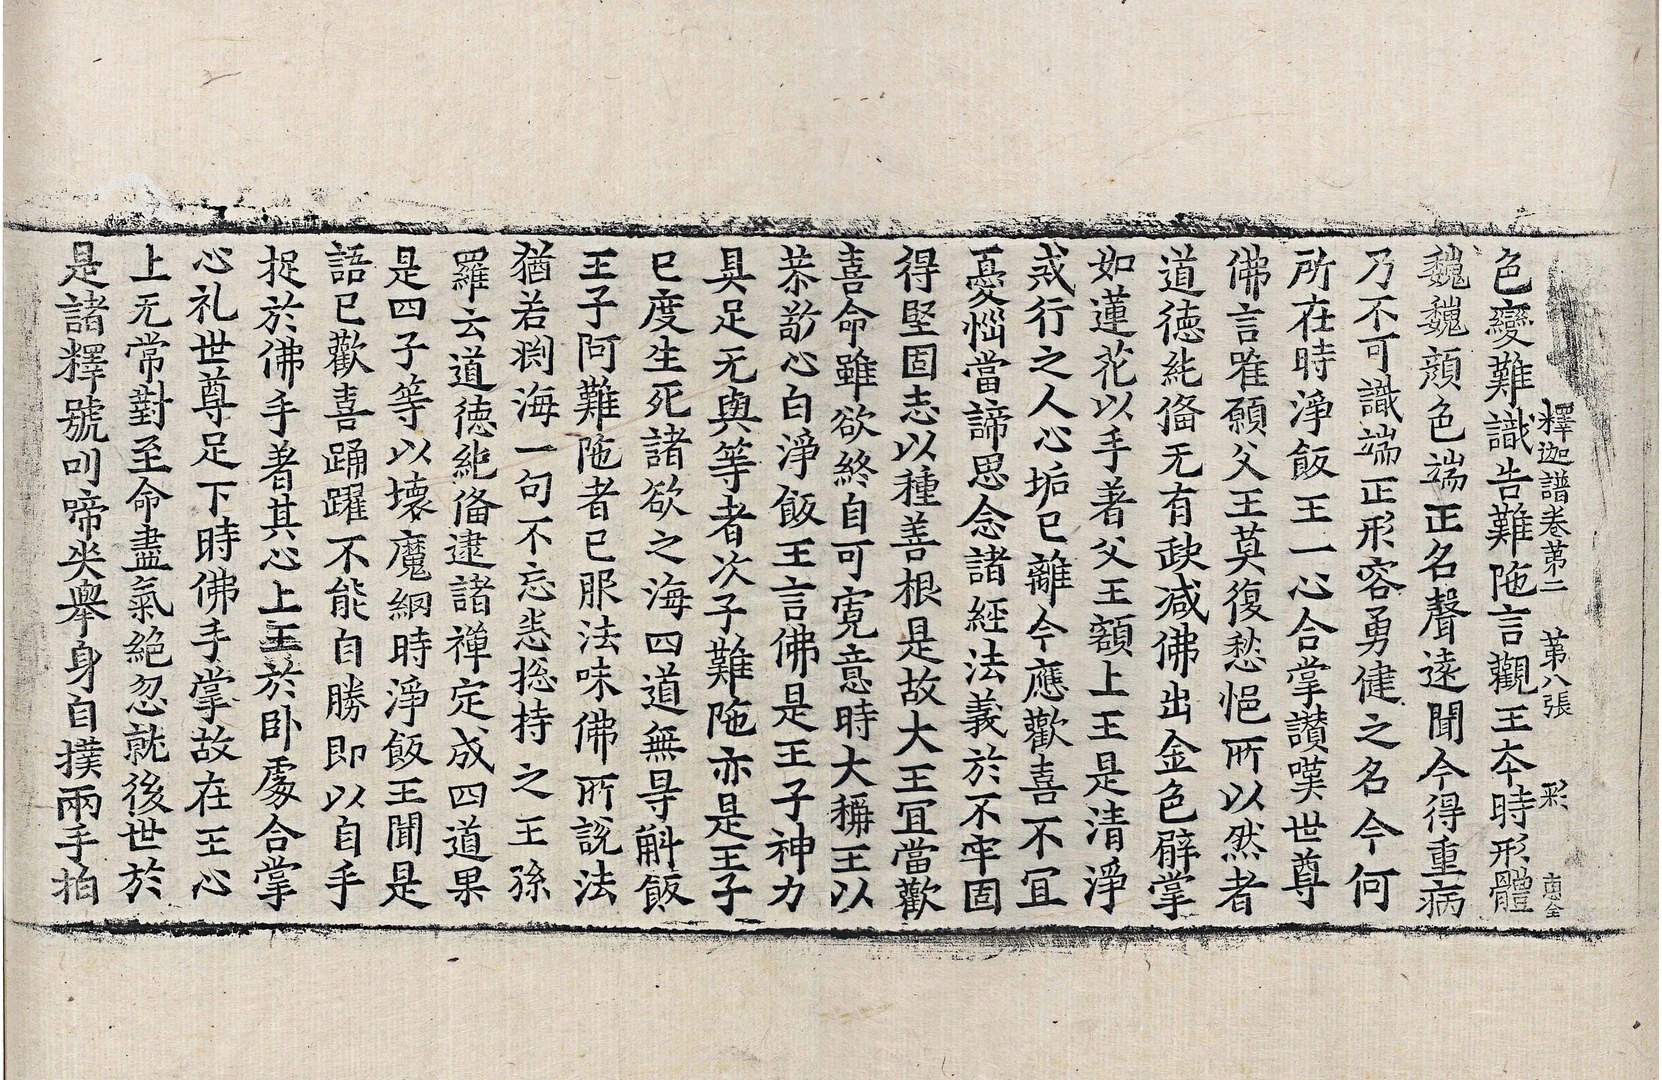 釋迦譜卷第二 第八張 彩 惠全
色變難識告難陁言觀王夲時形體
魏魏顔色端正名聲遠聞今得重病
乃不可識端正形容勇健之名今何
所在時淨飯王一心合掌讃嘆世尊
佛言唯願父王莫復愁悒所以然者
道徳純俻无有𡙇减佛出金色臂掌
如蓮花以手著父王額上王是清淨
戒行之人心垢已離今應歡喜不冝
憂惱當諦思念諸經法義於不牢固
得堅固志以種善根是故大王冝當歡
喜命雖欲終自可寛意時大稱王以
恭敬心白淨飯王言佛是王子神力
具足无與等者次子難陁亦是王子
已度生死諸欲之海四道無㝵斛飯
王子阿難陁者已服法味佛所說法
猶若渕海一句不忘悉捴持之王孫
羅云道徳純俻逮諸禪定成四道果
是四子等以壊魔網時淨飯王聞是
語已歡喜踊躍不能自勝即以自手
捉於佛手著其心上王於卧處合掌
心礼世尊足下時佛手掌故在王心
上无常對至命盡氣絶忽就後世於
是諸釋號叫啼哭舉身自撲兩手拍